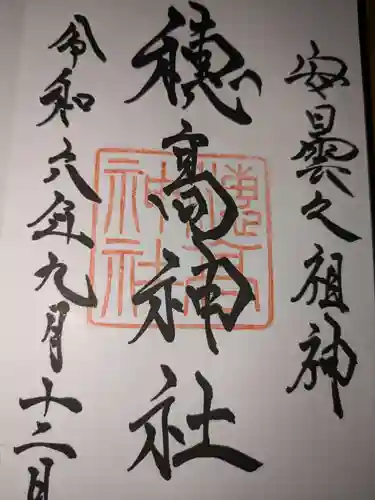 安曇之祖神
穂高神社
令和六年九月十二日
穂高
神社